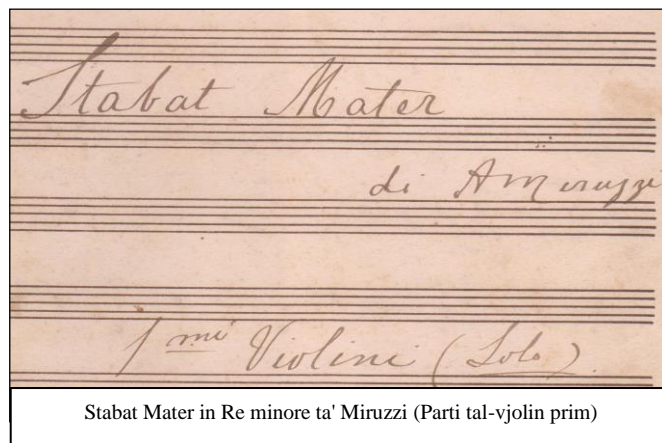 Stabat Mater
di A Miruzzi
1mi Violini (Solo)
Stabat Mater in Re minore ta' Miruzzi (Parti tal-vjolin prim)